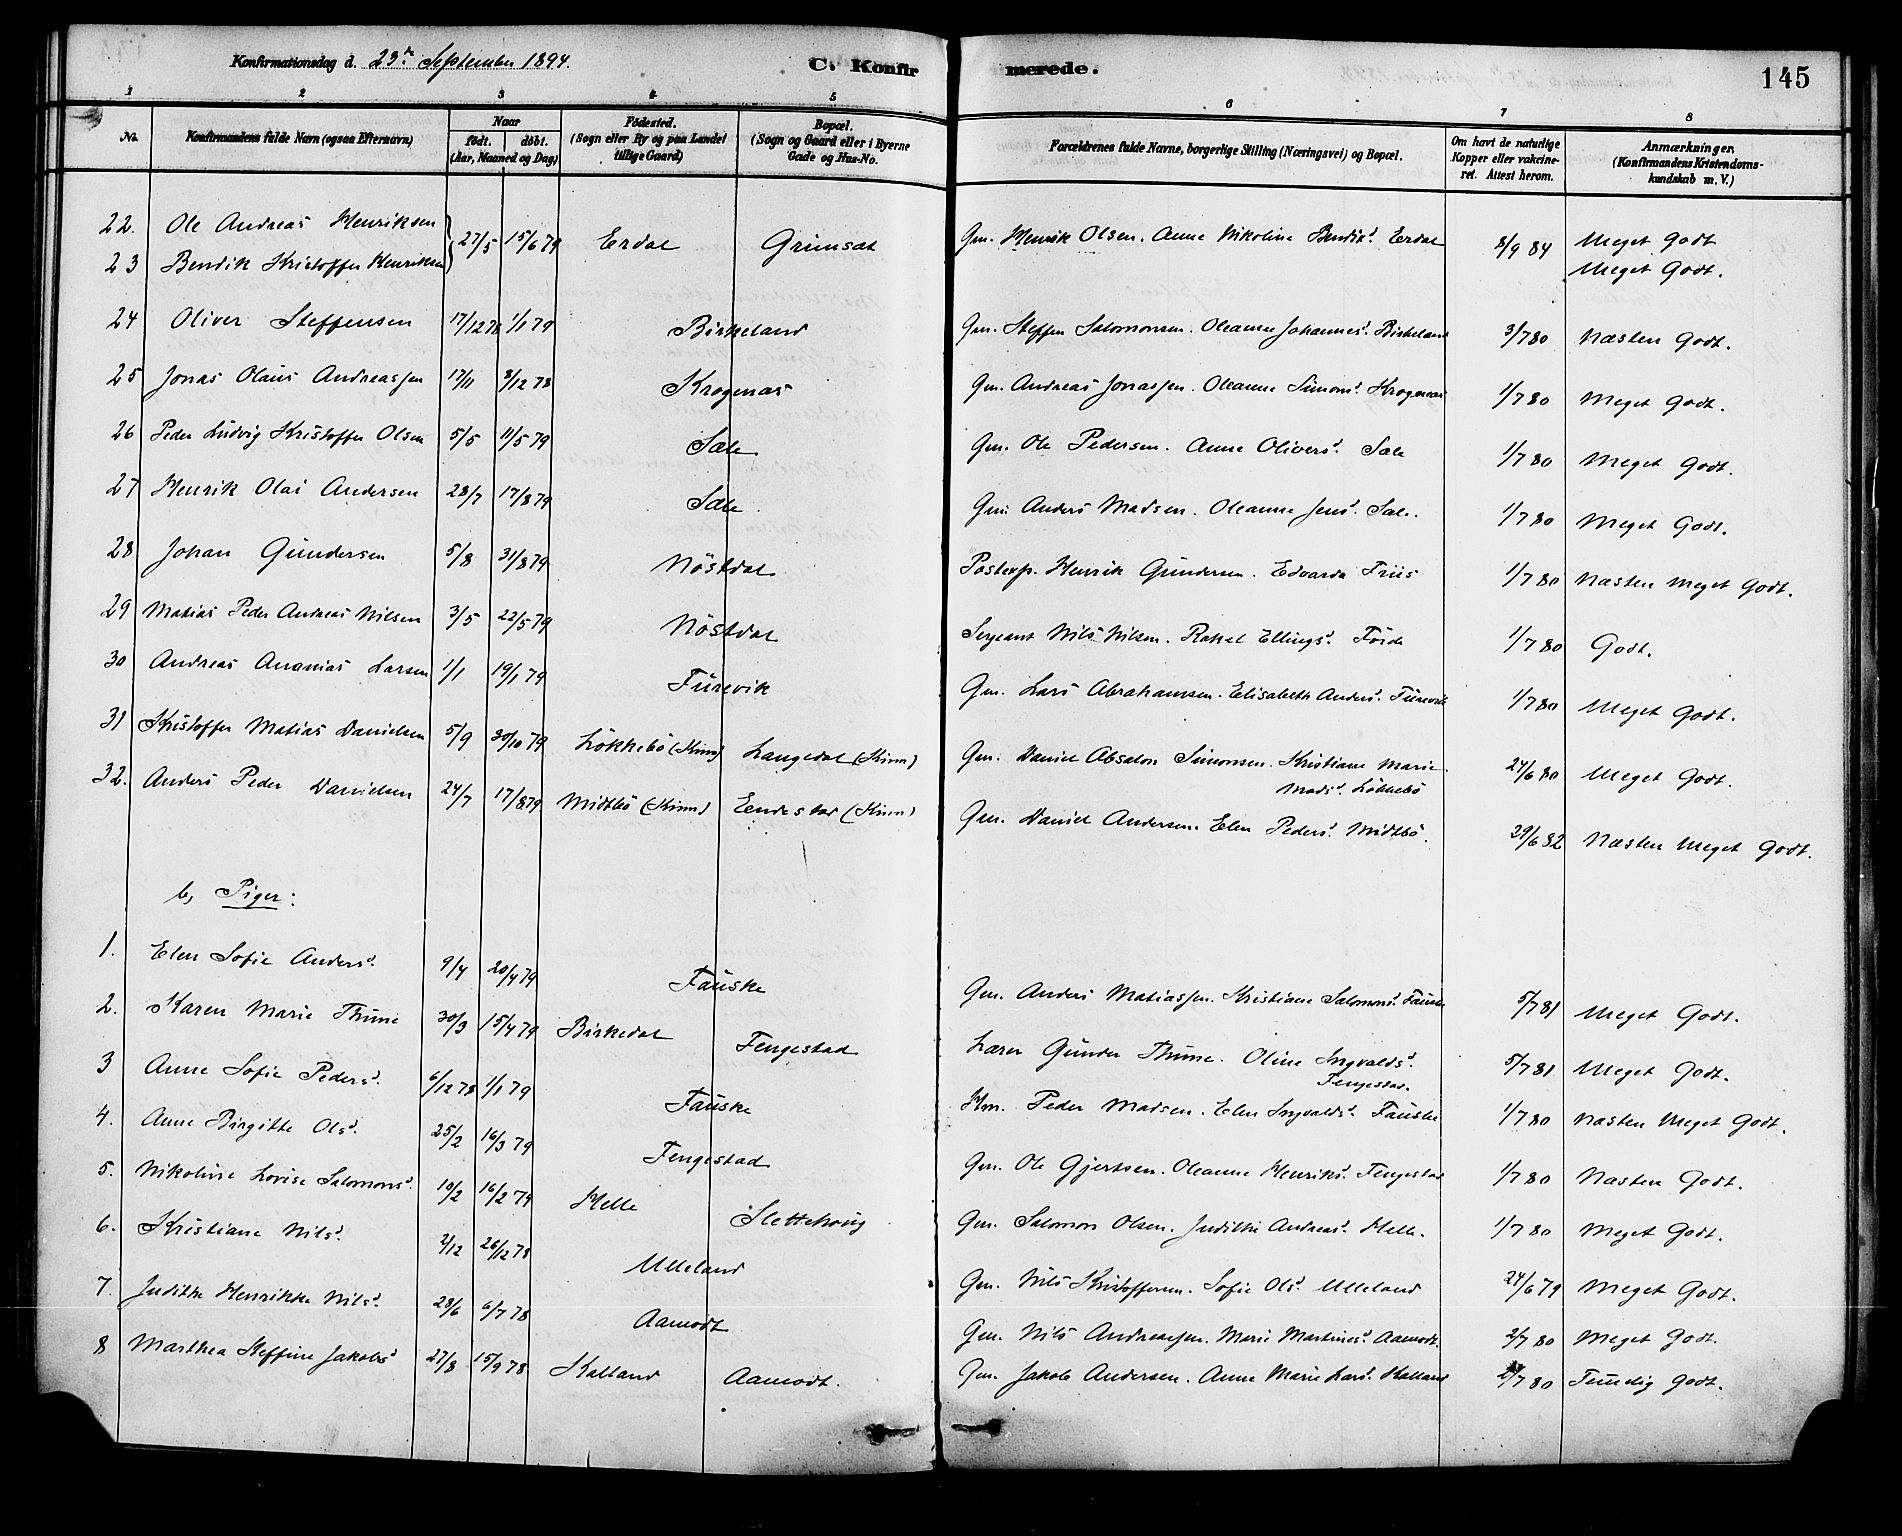 Konfirmationsdag d. 23de September 1894.
C. Konfirmerede.
145
1 2 3 4 5 6 7 8
No. Konfirmandens fulde Navn (ogsaa Efternavn) Naar født. døbt. (Aar, Maaned og Dag) Fødested. (Sogn eller By og paa Landet tillige Gaard) Bopæl. (Sogn og Gaard eller i Byerne Gade og Hus-No. Forældrenes fulde Navne, borgerlige Stilling (Næringsvei) og Bopæl. Om havt de naturlige Kopper eller vakcineret. Attest herom. Anmærkninger. (Konfirmandens Kristendomskundskab m. V.)
22. Ole Andreas Henriksen 27/5 15/6 79 Erdal Grimset Gm. Henrik Olsen. Anne Nikoline Bendiksd. Erdal 8/9 84 Meget Godt
23 Bendik Kristoffer Henriksen Meget Godt.
24 Oliver Steffensen 17/12 78 1/1 79 Birkeland Gm. Steffen Salomonsen. Oleanne Johannesd. Birkeland 3/7 80 Næsten Godt.
25 Jonas Olaus Andreassen 17/11 8/12 78 Krogenæs Gm. Andreas Jonassen. Oleanne Simonsd. Krogenæs 1/7 80 Meget Godt.
26 Peder Ludvig Kristoffer Olsen 5/5 11/5 79 Sæle Gm. Ole Pedersen. Anne Oliversd. Sæle 1/7 80 Meget Godt.
27 Henrik Olai Andersen 28/7 17/8 79 Sæle. Gm. Anders Madsen. Oleanne Jensd. Sæle. 1/7 80 Meget Godt.
28 Johan Gundersen 5/8 31/8 79 Nöstdal Postexp. Henrik Gundersen. Edvarda Friis 1/7 80 Næsten Meget Godt.
29 Matias Peder Andreas Nilsen 3/5 22/5 79 Nöstdal Sergeant Nils Nilsen. Rakel Ellingsd. Förde 1/7 80 Godt.
30 Andreas Ananias Larsen 1/1 19/1 79 Furevik Gm. Lars Abrahamsen. Elisabeth Andersd. Furevik 1/7 80 Meget Godt.
31 Kristoffer Matias Danielsen 5/9 30/10 79 Lökkebö (Kinn) Langedal (Kinn) Gm. Daniel Absalon Simonsen. Kristiane Marie
Madsd. Lökkebö 24/6 80 Meget Godt.
32. Anders Peder Danielsen 24/7 17/8 79 Midtbö (Kinn) Endestad (Kinn) Gm. Daniel Andersen. Elen Pedersd. Midtbö. 29/6 82 Næsten Meget Godt.
b, Piger:
1. Elen Sofie Andersd. 9/4 20/4 79 Fauske Gm. Anders Matiassen. Kristiane Salomonsd. Fauske 5/7 81 Meget Godt.
2. Karen Marie Thune 30/3 15/4 79 Birkedal Fengestad Lærer Gunder Thune. Oline Ingvaldsd.
Fengestad. 5/7 81 Meget Godt.
3 Anne Sofie Pedersd. 6/12 78 1/1 79 Fauske Hm. Peder Madsen. Elen Ingvaldsd. Fauske 1/7 80 Næsten Meget Godt.
4. Anne Birgitte Olsd. 25/2 16/3 79 Fengestad Gm. Ole Gjertsen. Oleanne Henriksd. Fengestad 1/7 80 Næsten Godt.
5. Nikoline Lovise Salomonsd. 10/2 16/2 79 Helle Slettehoug Gm. Salomon Olsen. Judithe Andreasd. Helle. 1/7 80 Meget Godt.
6. Kristiane Nilsd. 2/12 26/12 78 Ulleland Gm. Nils Kristoffersen. Sofie Olsd. Ulleland 24/6 79 Meget Godt.
7. Judithe Henrikke Nilsd. 28/6 6/7 78 Aamodt Gm. Nils Andreassen. Marie Martinusd. Aamodt. 2/7 80 Meget Godt.
8 Marthea Steffine Jakobsd 27/8 15/9 78 Kalland Aamodt. Gm. Jakob Andersen. Anne Marie Larsd. Kalland 2/7 80 Temelig Godt.